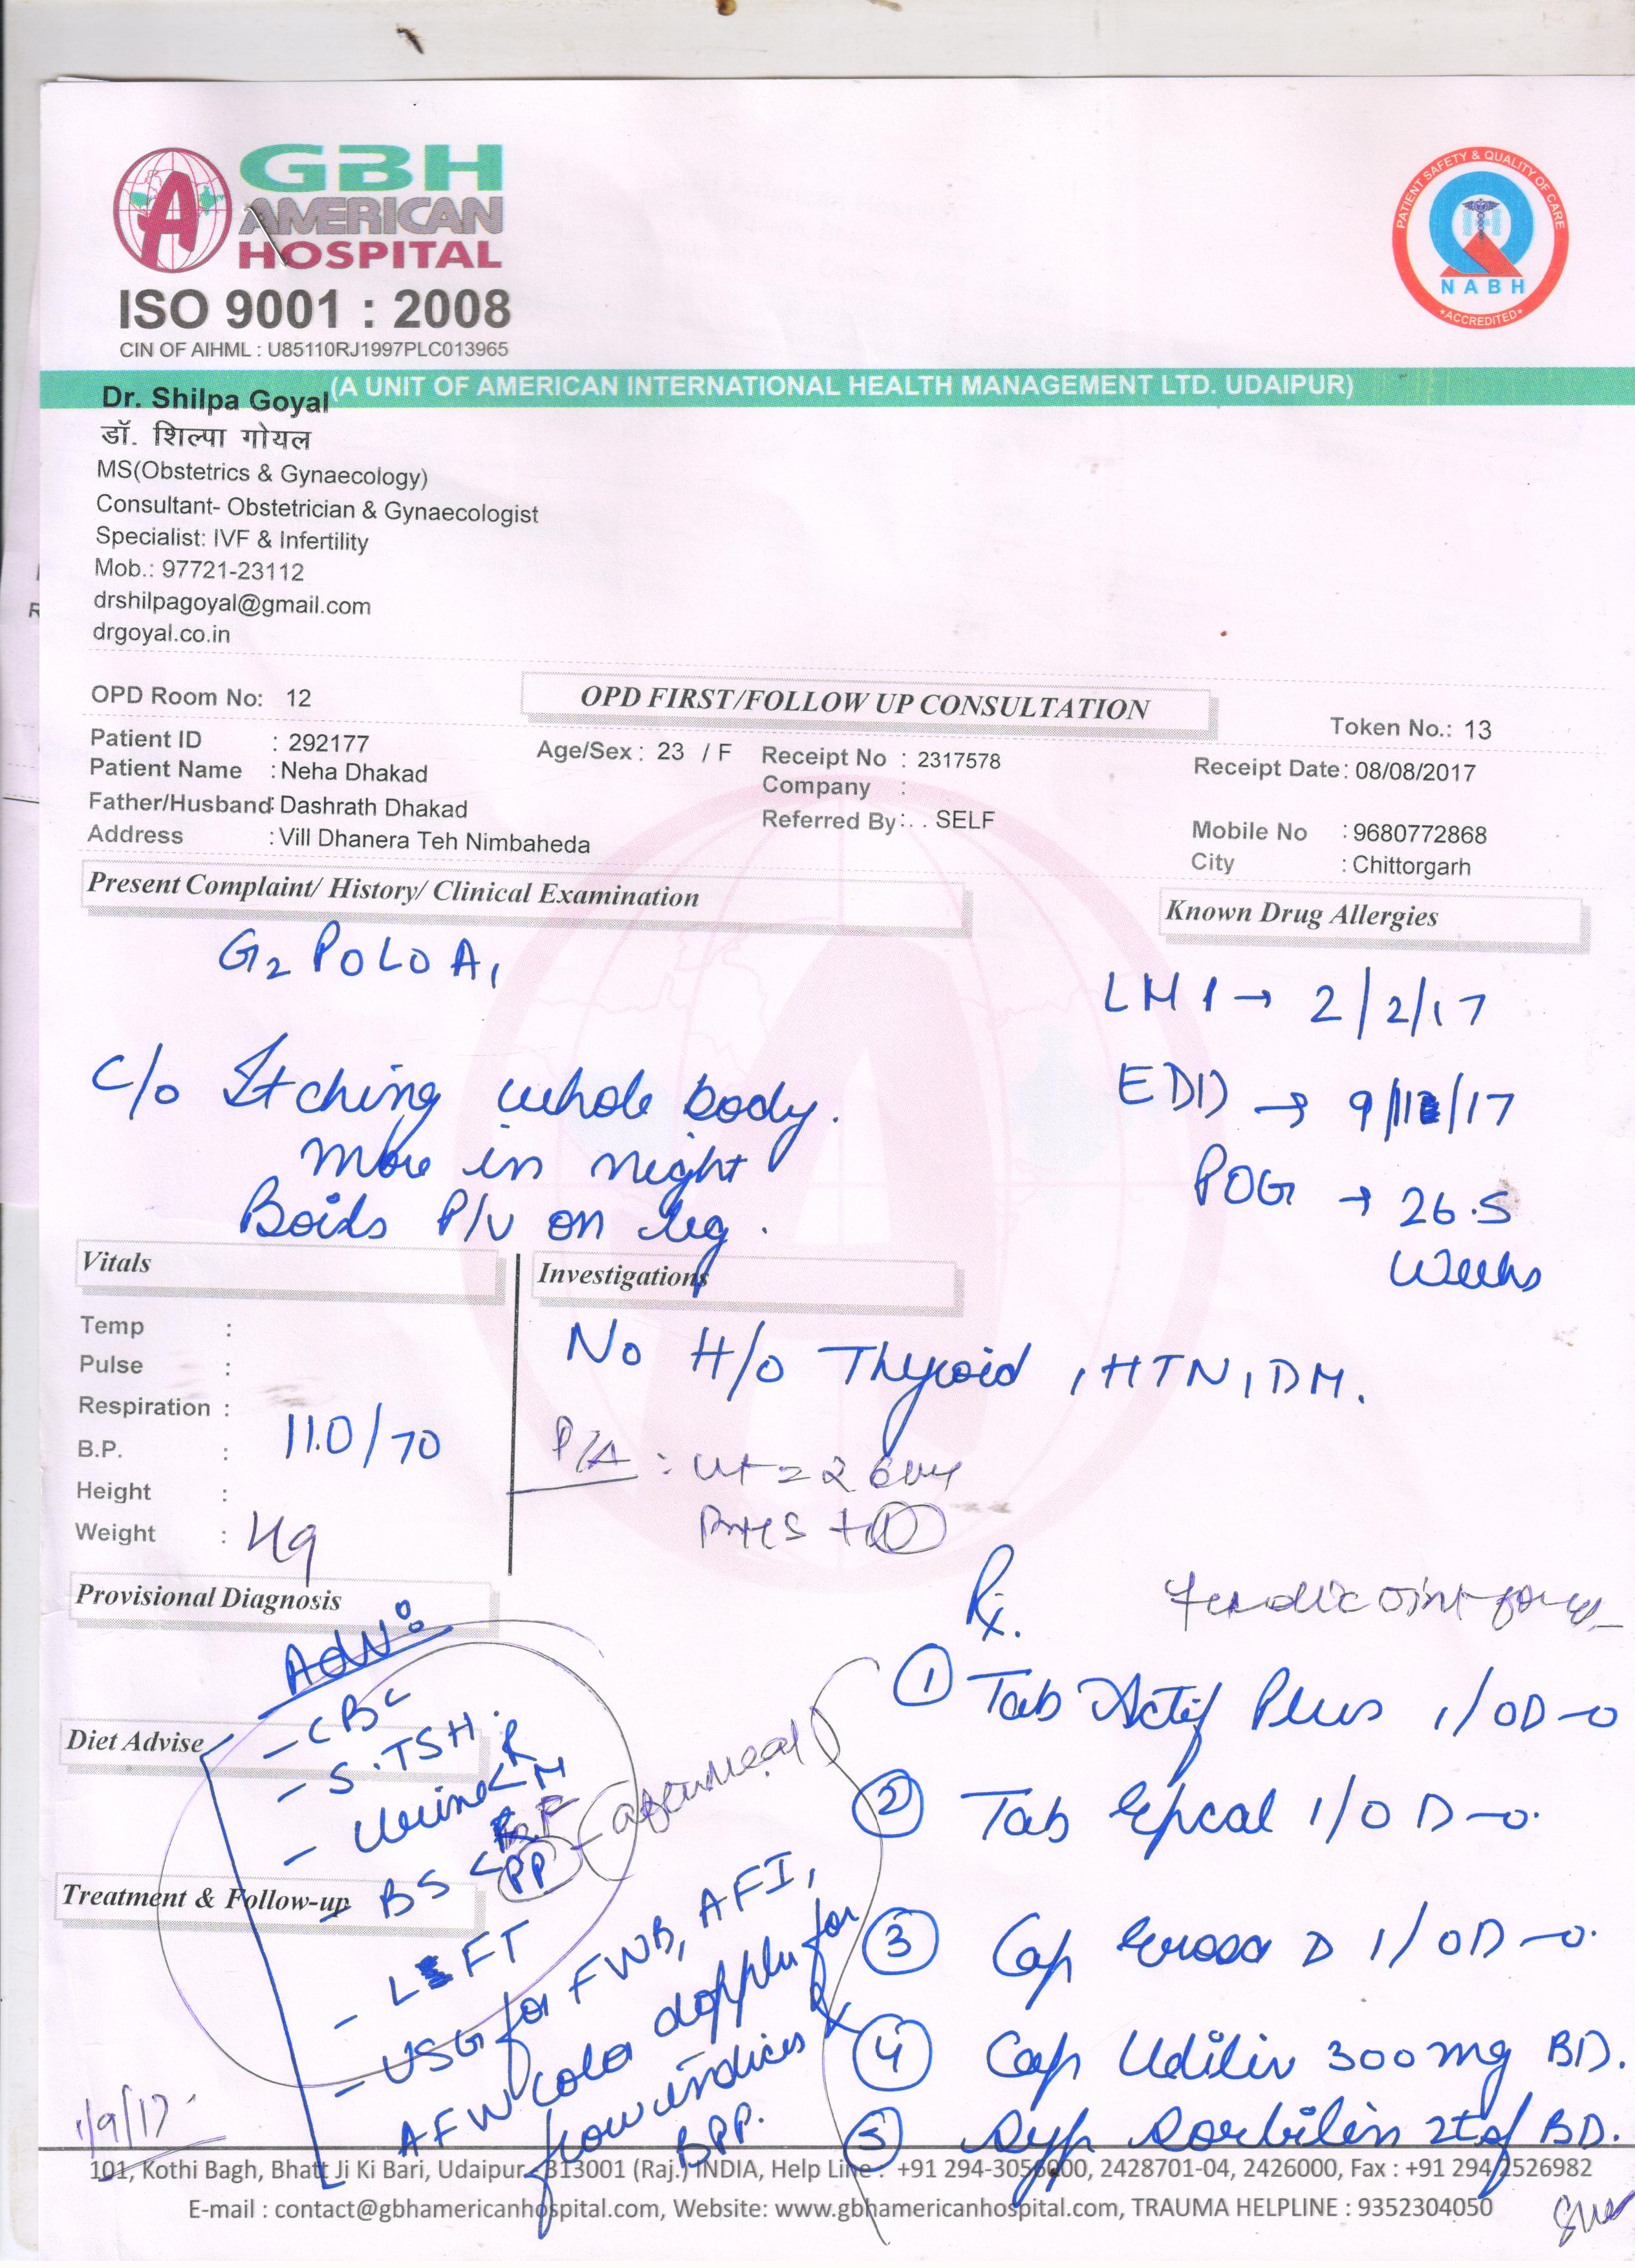 GBH
AMERICAN
HOSPITAL
ISO 9001 : 2008
CIN OF AIHML : U85110RJ1997PLC013965
PATIENT SAFETY & QUALITY OF CARE
NABH
ACCREDITED
(A UNIT OF AMERICAN INTERNATIONAL HEALTH MANAGEMENT LTD. UDAIPUR)
Dr. Shilpa Goyal
डॉ. शिल्पा गोयल
MS(Obstetrics & Gynaecology)
Consultant- Obstetrician & Gynaecologist
Specialist: IVF & Infertility
Mob.: 97721-23112
drshilpagoyal@gmail.com
drgoyal.co.in
OPD Room No: 12
OPD FIRST/FOLLOW UP CONSULTATION
Token No.: 13
Patient ID : 292177
Age/Sex : 23 / F
Receipt No : 2317578
Receipt Date: 08/08/2017
Patient Name : Neha Dhakad
Company :
Father/Husband: Dashrath Dhakad
Referred By:. . SELF
Mobile No : 9680772868
Address : Vill Dhanera Teh Nimbaheda
City : Chittorgarh
Present Complaint/ History/ Clinical Examination
Known Drug Allergies
G2 P0L0A1
LMP → 2/2/17
C/o Itching whole body.
EDD → 9/11/17
more in night
POG → 26.5
Weeks
Boids P/V on leg.
Vitals
Investigations
Temp :
Pulse :
Respiration :
B.P. : 110/70
Height :
Weight : 49
No H/o Thyroid, HTN, DM.
P/A : ut = 26
Provisional Diagnosis
Rx.
Adv:
- CBC
- S.TSH.
- Urine < R M
- BS < F PP
- LFT
- USG for FWB, AFI,
AFW color doppler for
flow indices &
BPP.
Diet Advise
Treatment & Follow-up
1/9/17
① Tab Actif Plus 1/OD
② Tab Epcal 1/OD
③ Cap D 1/OD
④ Cap Udiliv 300mg BD.
⑤ Syp Sorbilin 2tsf BD.
101, Kothi Bagh, Bhatt Ji Ki Bari, Udaipur - 313001 (Raj.) INDIA, Help Line : +91 294-3056000, 2428701-04, 2426000, Fax : +91 294 2526982
E-mail : contact@gbhamericanhospital.com, Website: www.gbhamericanhospital.com, TRAUMA HELPLINE : 9352304050